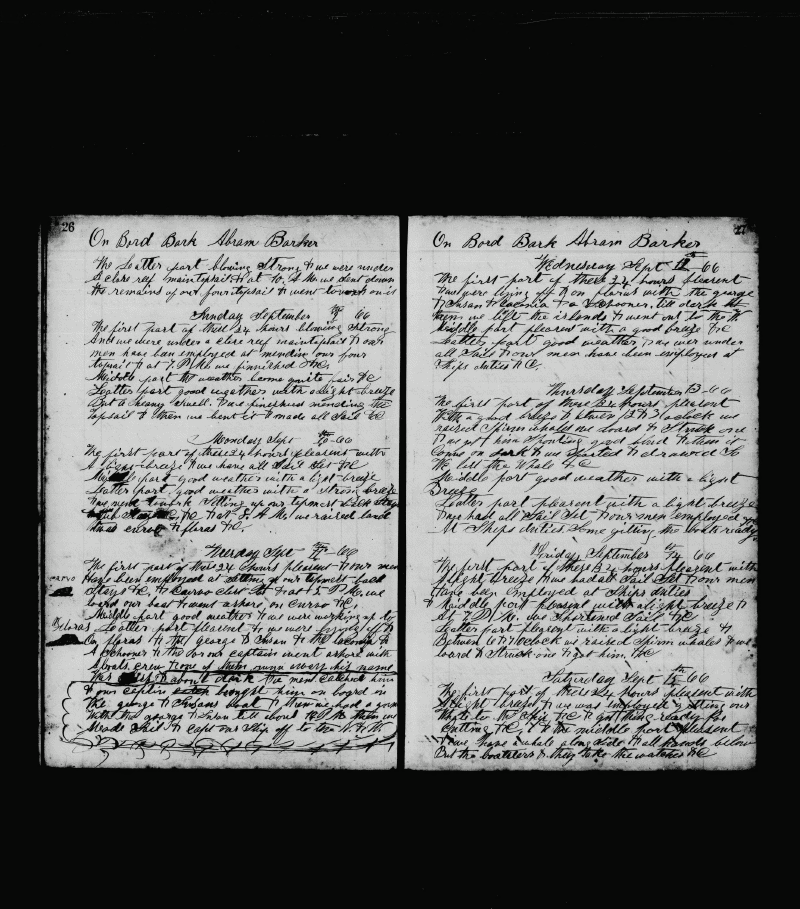 26
On Bord Bark Abram Barker
The Latter part blowing Strong & we were under
a close reef maintopsail & at 10 A.M. we sent down
the remains of our fourtopsail & went to work on it
Sunday September 9 66
The first part of these 24 hours blowing Strong
And we were under a close reef maintopsail & our
men have ban employed at mendin our four
topsail & at 7 P.M. we finnished &C.
Middle part the weather come quite fair &C
Leatter part good weather with a light breeze
But a heavy swell. & we finerhed mending the
topsail & then we bent it & made all Sail &C
Monday Sept 10-66
The first part of these 24 hours pleasent with
A light breeze & we have all Sail Set &C
Middle part good weather with a light breeze
Leatter part, good weather with a Strong breeze
& we went to work Setting up our topmost back stays
&C. & at 5. A.M. we raised land
it was curvo & floras &C.
Tuesday Sept 11-66
The first part of these 24 hours pleasent & our men
Have been employed at Setting up our topmost back
Stays &C. & Curvo close to & at 5. P.M. we
loard our boat & went ashore, on Curvo &C.
curvo
Middle part good weather & we were working up to
floras
Leatter part pleasent & we were laying off &
On floras & the george & Susan & the &
A Schooner & the our captain went ashore with
A boats crew & one of them runn away his name
Was & about dark the men catched him
& our captin brought him on board in
The george & Susans boat & then we had a gam
With the george & Susan till about & then we
Made Sail & kept our Ship off to the W. & W
27
On Bord Bark Abram Barker
Wednesday Sept 12-66
The first part of these 24 hours pleasent
& we were laying off & on floras with the george
& Susan & & a Schooner, till dark &
then we left the islands & went out to the W
Middle part pleasent with a good breeze &C
Leatter part good weather, & we wer under
all Sail & our men have been employed at
Ships duties &C.
Thursday September 13-66
The first part of these 24 hours pleasent
With a good breeze & 3 oclock we
raised Spirm whales we loard & Struck one
& we got him Spouting good blud & then it
Come on dark & we & drawed So
We lost the Whale &C
Middle part good weather with a light
Breeze
Leatter part pleasent with a light breeze
& we had all Sail Set & our men employed
At Ships duties Some giting the boats ready
Friday September 14 66
The first part of these 24 hours pleasent with
A light breeze & we had all Sail Set & our men
Have been employed at Ships duties
& Middle part pleasent with a light breeze &
At 7. P.M. we Shortened Sail &C.
Leatter part pleasent with a light breeze &
Betwen 6 & 7 oclock we raised Spirm whales & we
loard & Struck one & got him. &C
Saturday Sept 15 66
The first part of these 24 hours pleasent with
A light breeze & we was employed gitting our
Whale to the Ship &C & got things ready for
Cutting &C. & the middle part pleasent
& we have a whale along Side & all hands below
But the boatsters & they take the watches &C